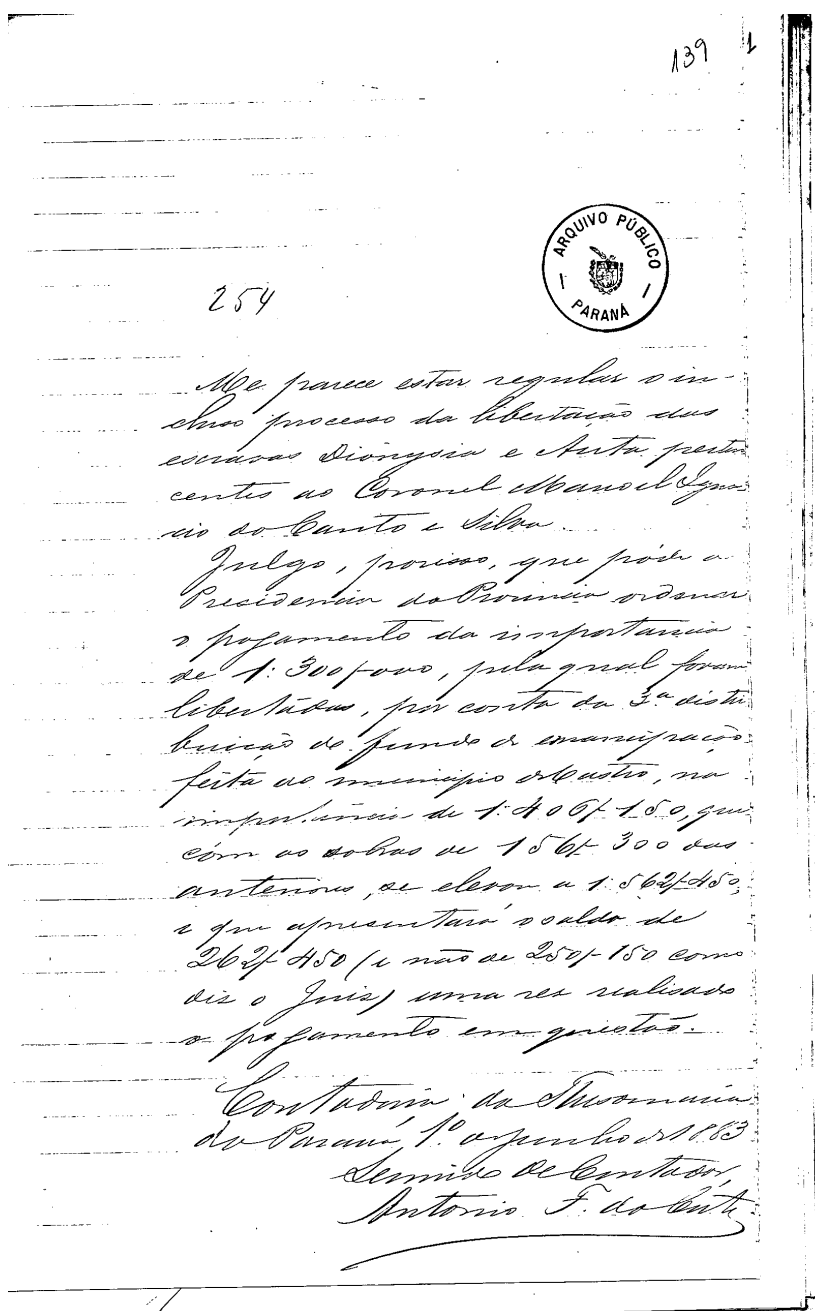 139 1
ARQUIVO PÚBLICO
PARANÁ
254
Me parece estar regular o in-
cluso processo da libertação das
escravas Dionysia e Anta perten
centes ao Coronel Manoel Igna-
cio do Canto e Silva.
Julgo, porisso, que póde a
Presidencia da Provincia ordenar
o pagamento da importancia
de 1:300$000, pela qual foram
libertadas, por conta da 3.ª distri
buição do fundo de emancipação
feita ao municipio de Castro, na
importancia de 1:406$150, que
com as sobras de 156$300 das
anteriores, se elevou a 1:562$450,
e que apresentará o saldo de
262$450 (e não de 250$150 como
diz o Juiz) uma vez realisado
o pagamento em questão.
Contadoria da Thesouraria
do Paraná, 1º de Junho de 1883
Servindo de Contador,
Antonio F. da